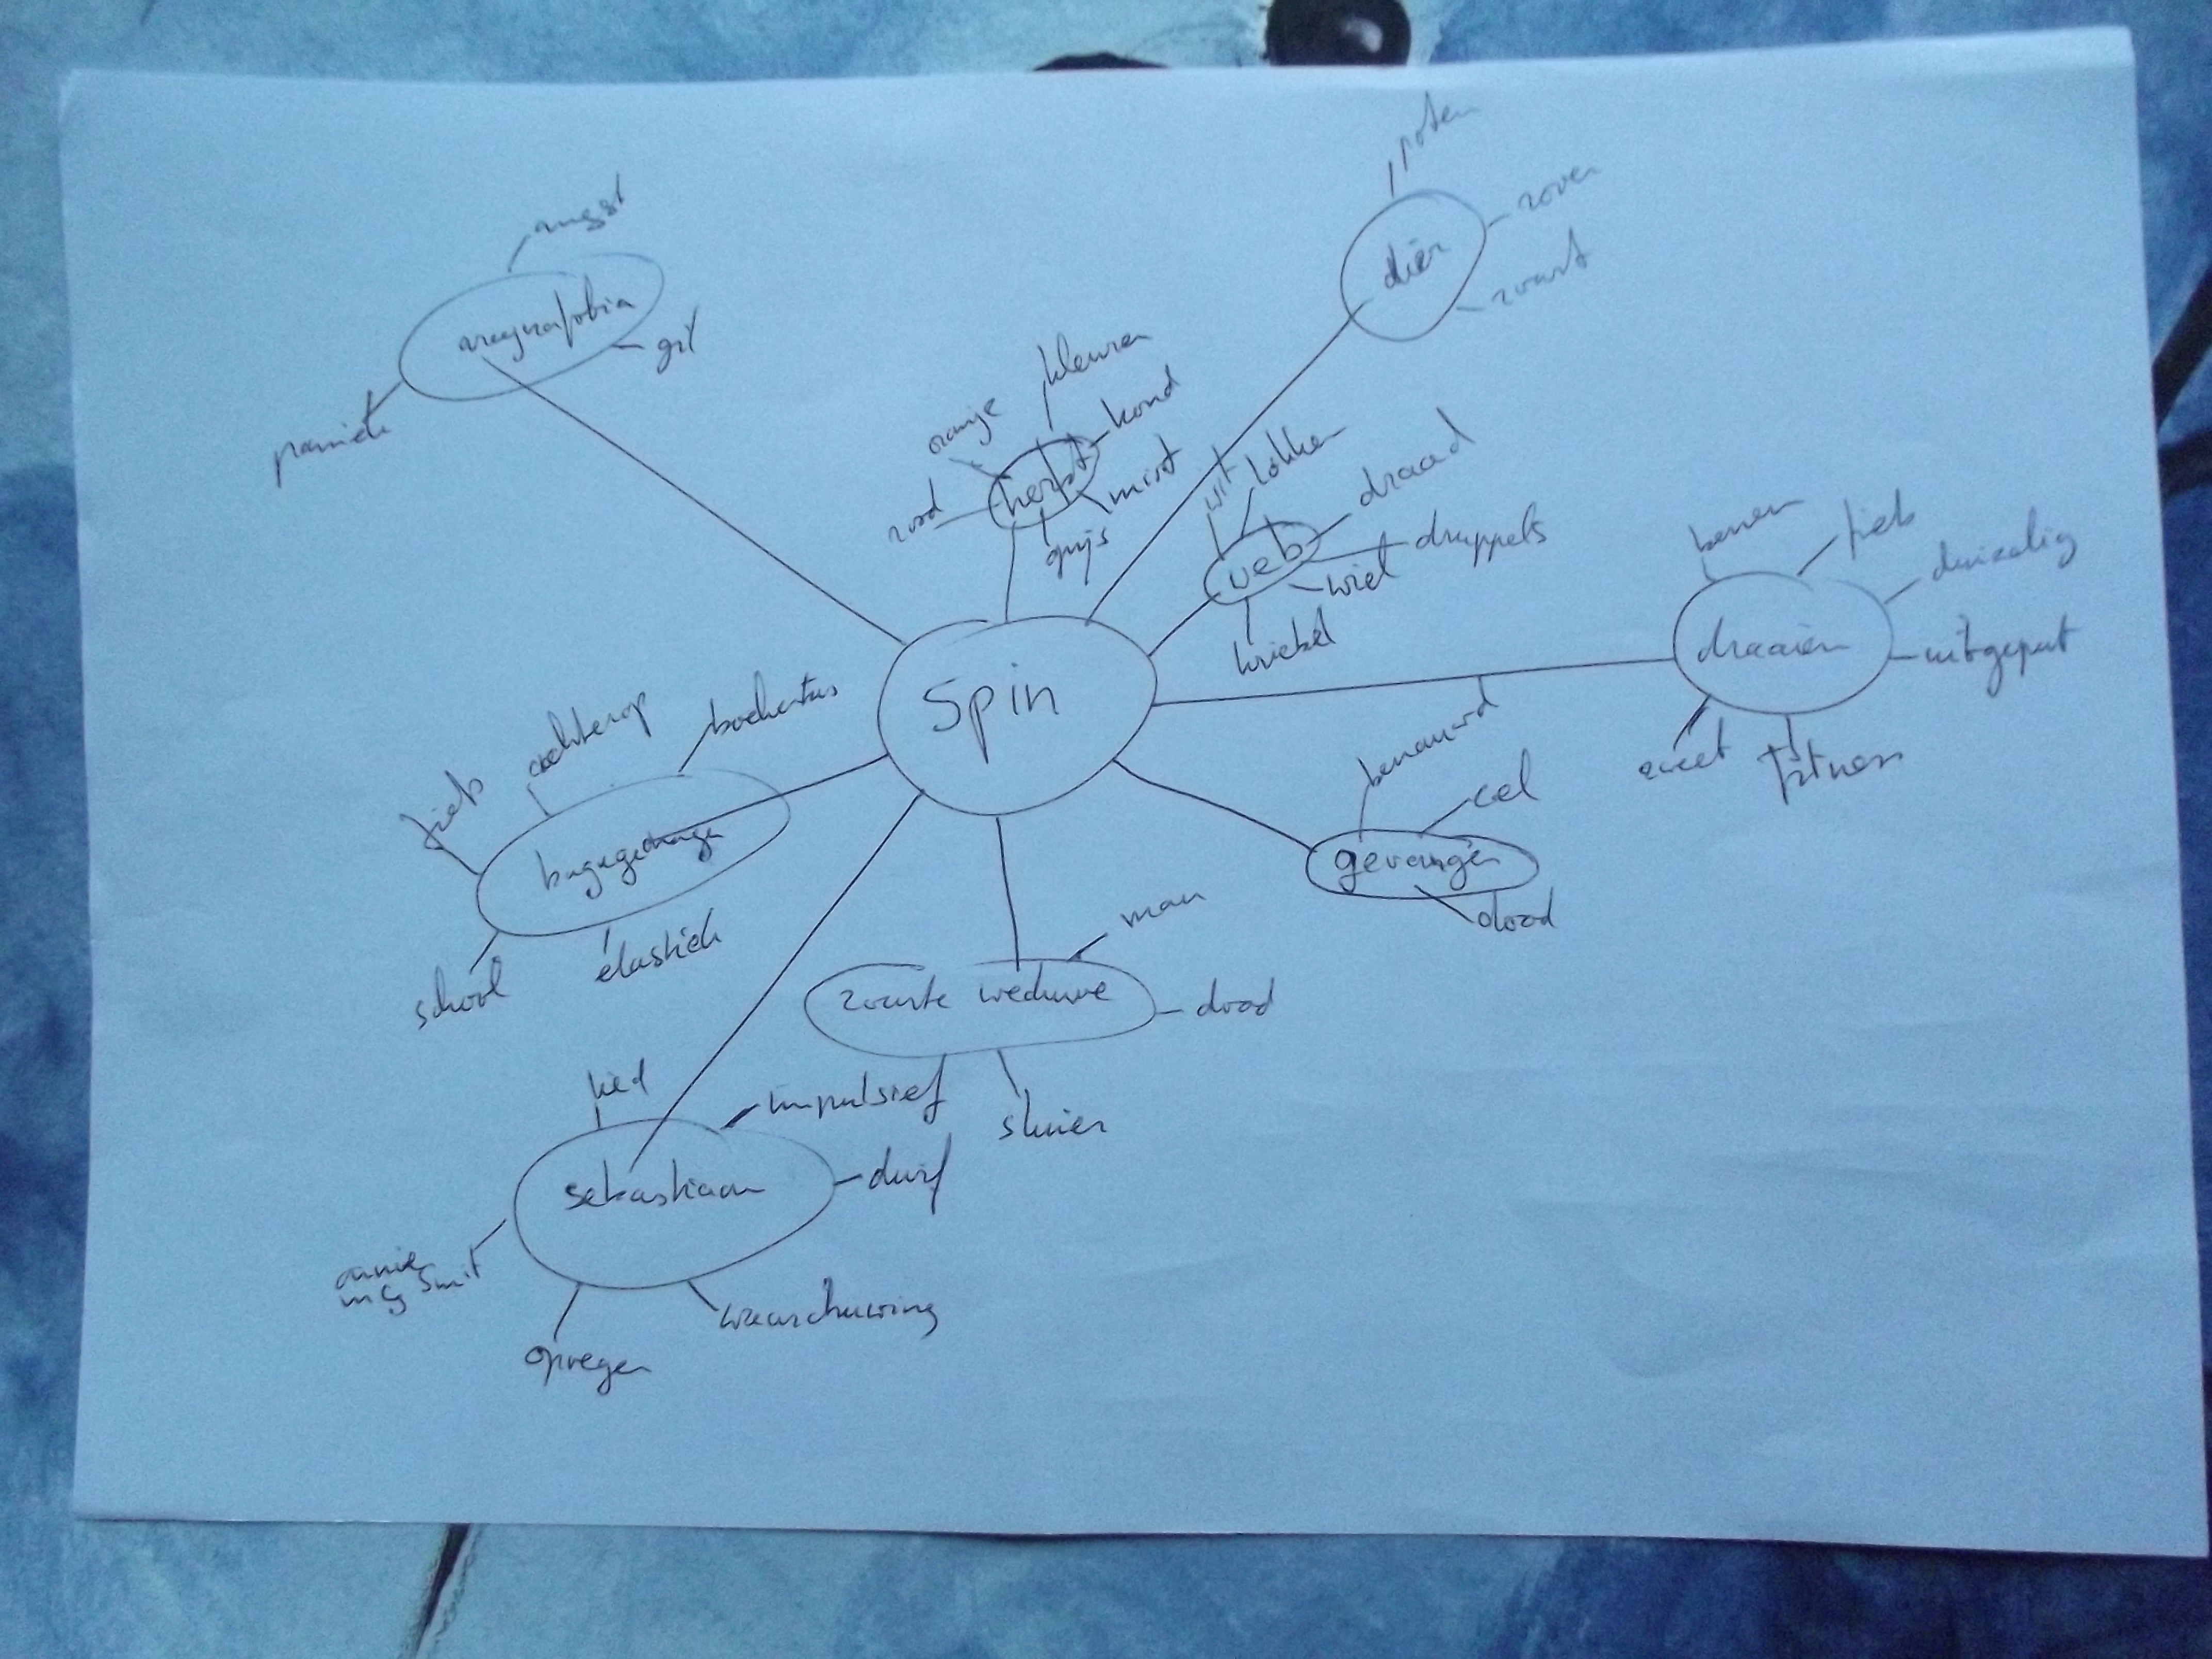 poten
angst
dier
rover
zwart
aragnafobia
gil
paniek
kleuren
oranje
kond
herfst
mist
rood
grijs
wit
lokken
draad
web
druppels
wiel
kriebel
benen
fiets
duizelig
draaien
uitgeput
zweet
fitness
Spin
achterop
boekentas
fiets
bagagedrager
school
elastiek
benauwd
cel
gevangen
dood
man
zwarte weduwe
dood
sluier
lied
impulsief
sebastiaan
durf
annie
mg Smit
waarschuwing